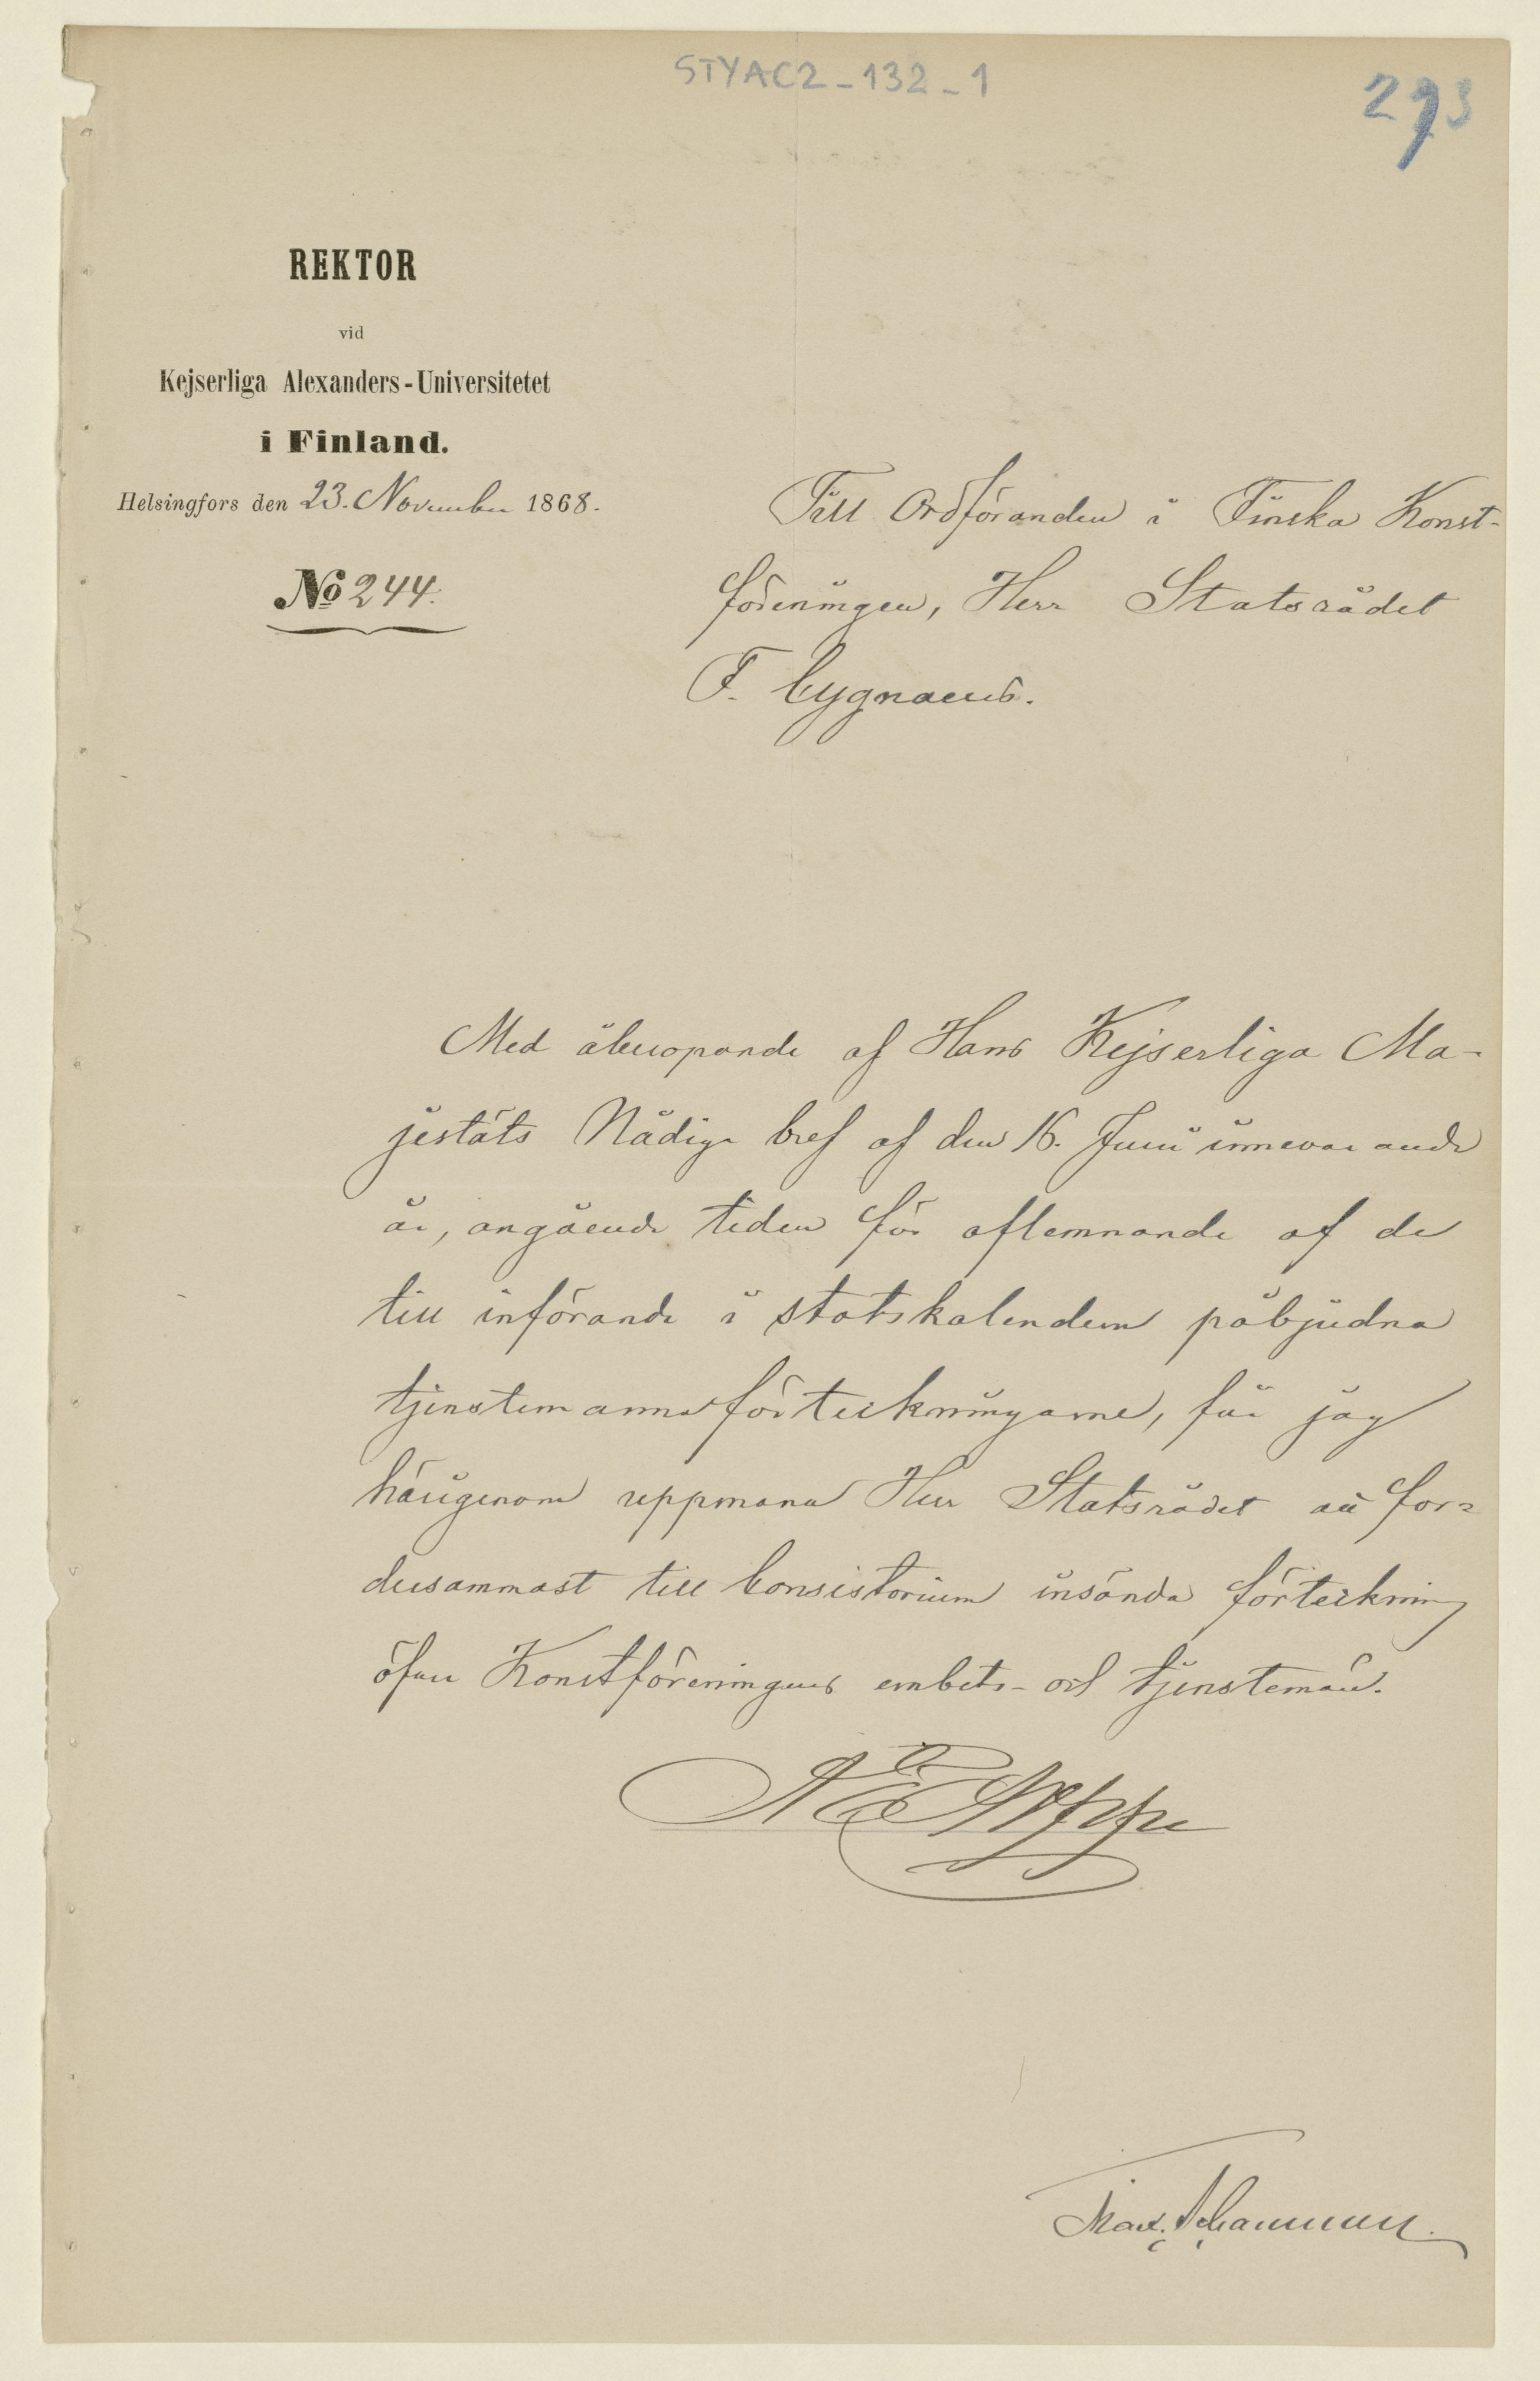 STYAC2-132-1
293
REKTOR
vid
Kejserliga Alexanders-Universitetet
i Finland.
Helsingfors den 23. November 1868.
No 244.
Till Ordföranden i Finska Konst-
föreningen, Herr Statsrådet
F. Cygnaeus.
Med åberopande af Hans Kejserliga Ma-
jestäts Nådiga bref af den 16. Juni innevarande
år, angående tiden för aflemnande af de
till införande i statskalendern påbjudna
tjenstemannaförteckningarne, får jag
härigenom uppmana Herr Statsrådet att for-
dersammast till Consistorium insända förteckning
öfver Konstföreningens embets- och tjenstemän.
A E Arppe